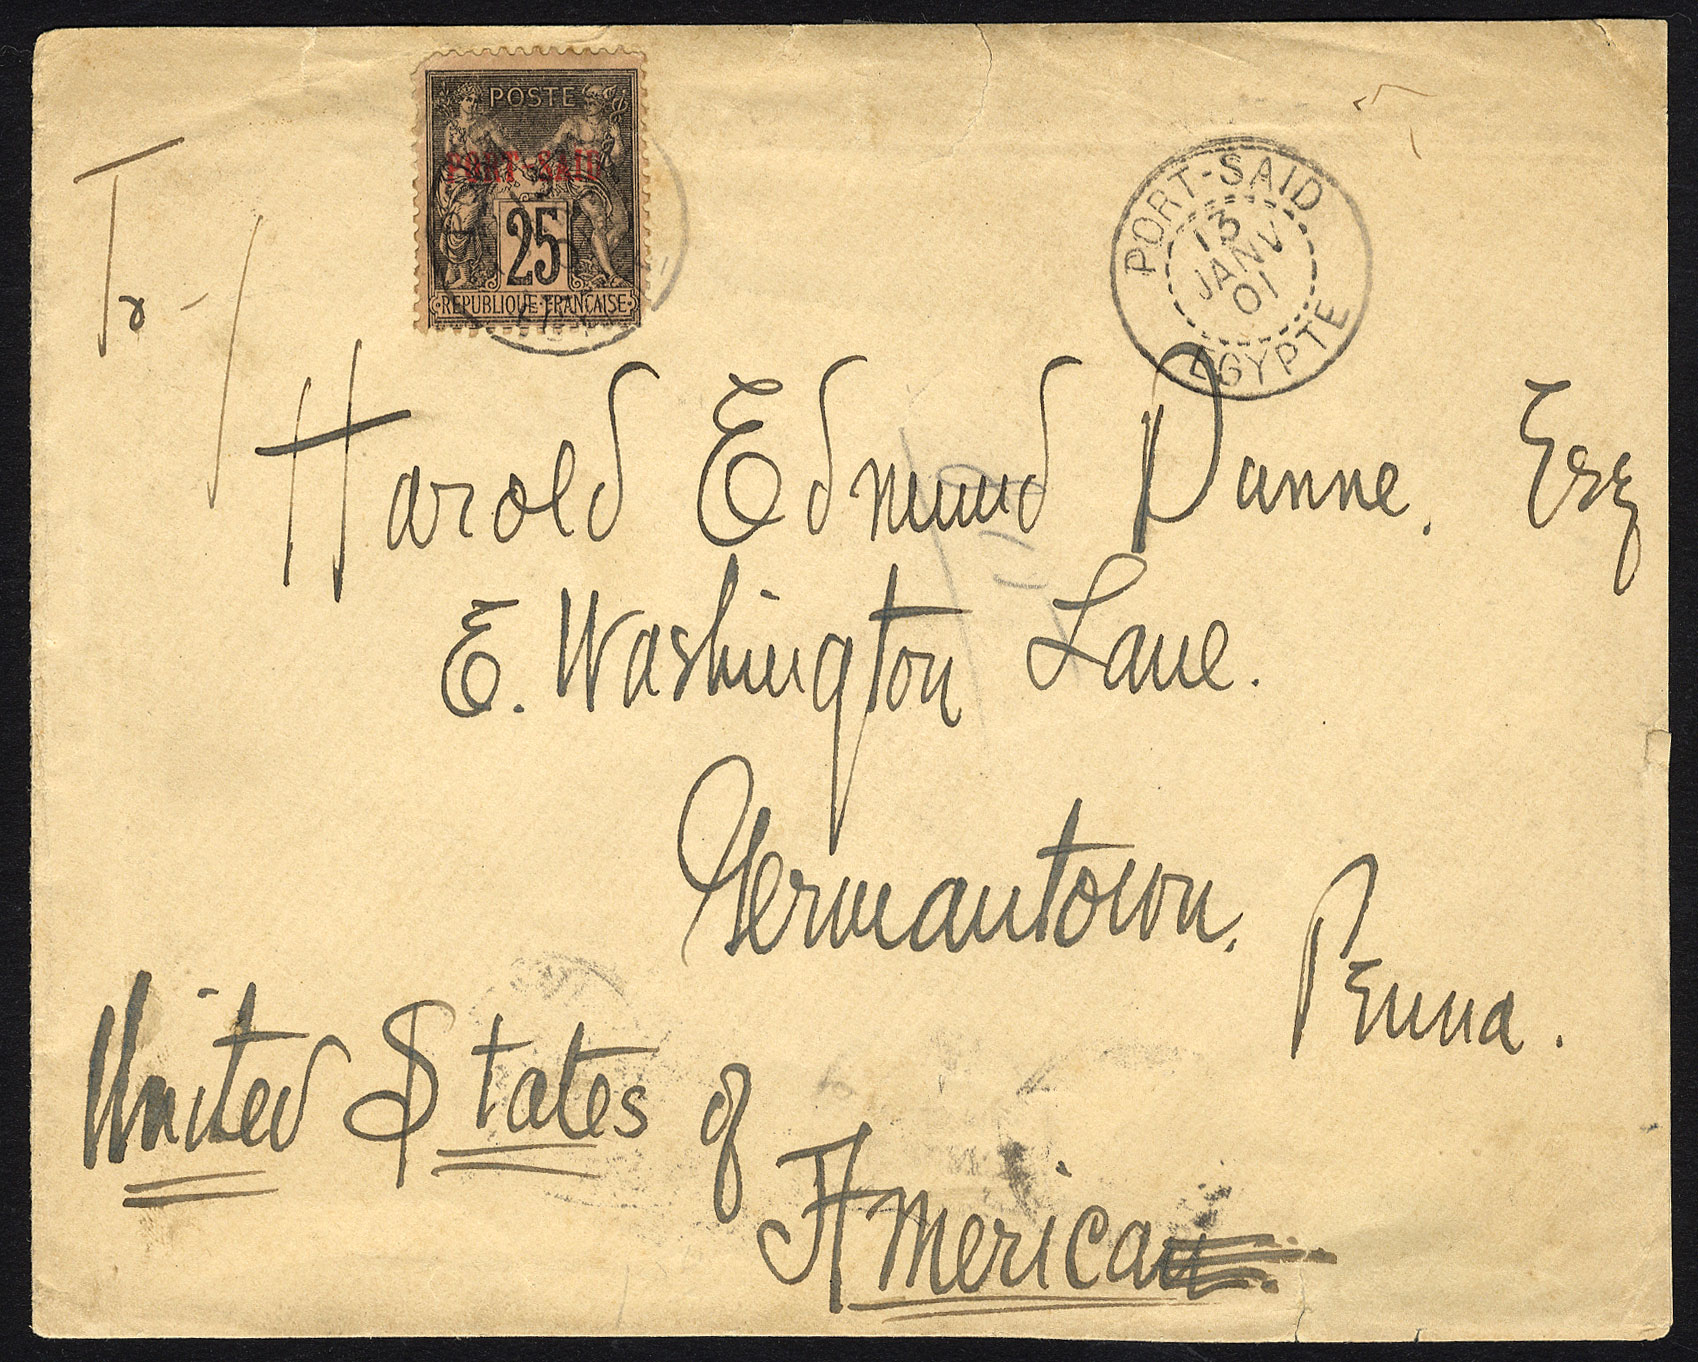 POSTE
PORT-SAID
25
REPUBLIQUE FRANÇAISE
PORT-SAID
13
JANV
01
EGYPTE
Harold Edmund Dunne. Esq
E. Washington Lane.
Germantown.
Penna.
United States of
America